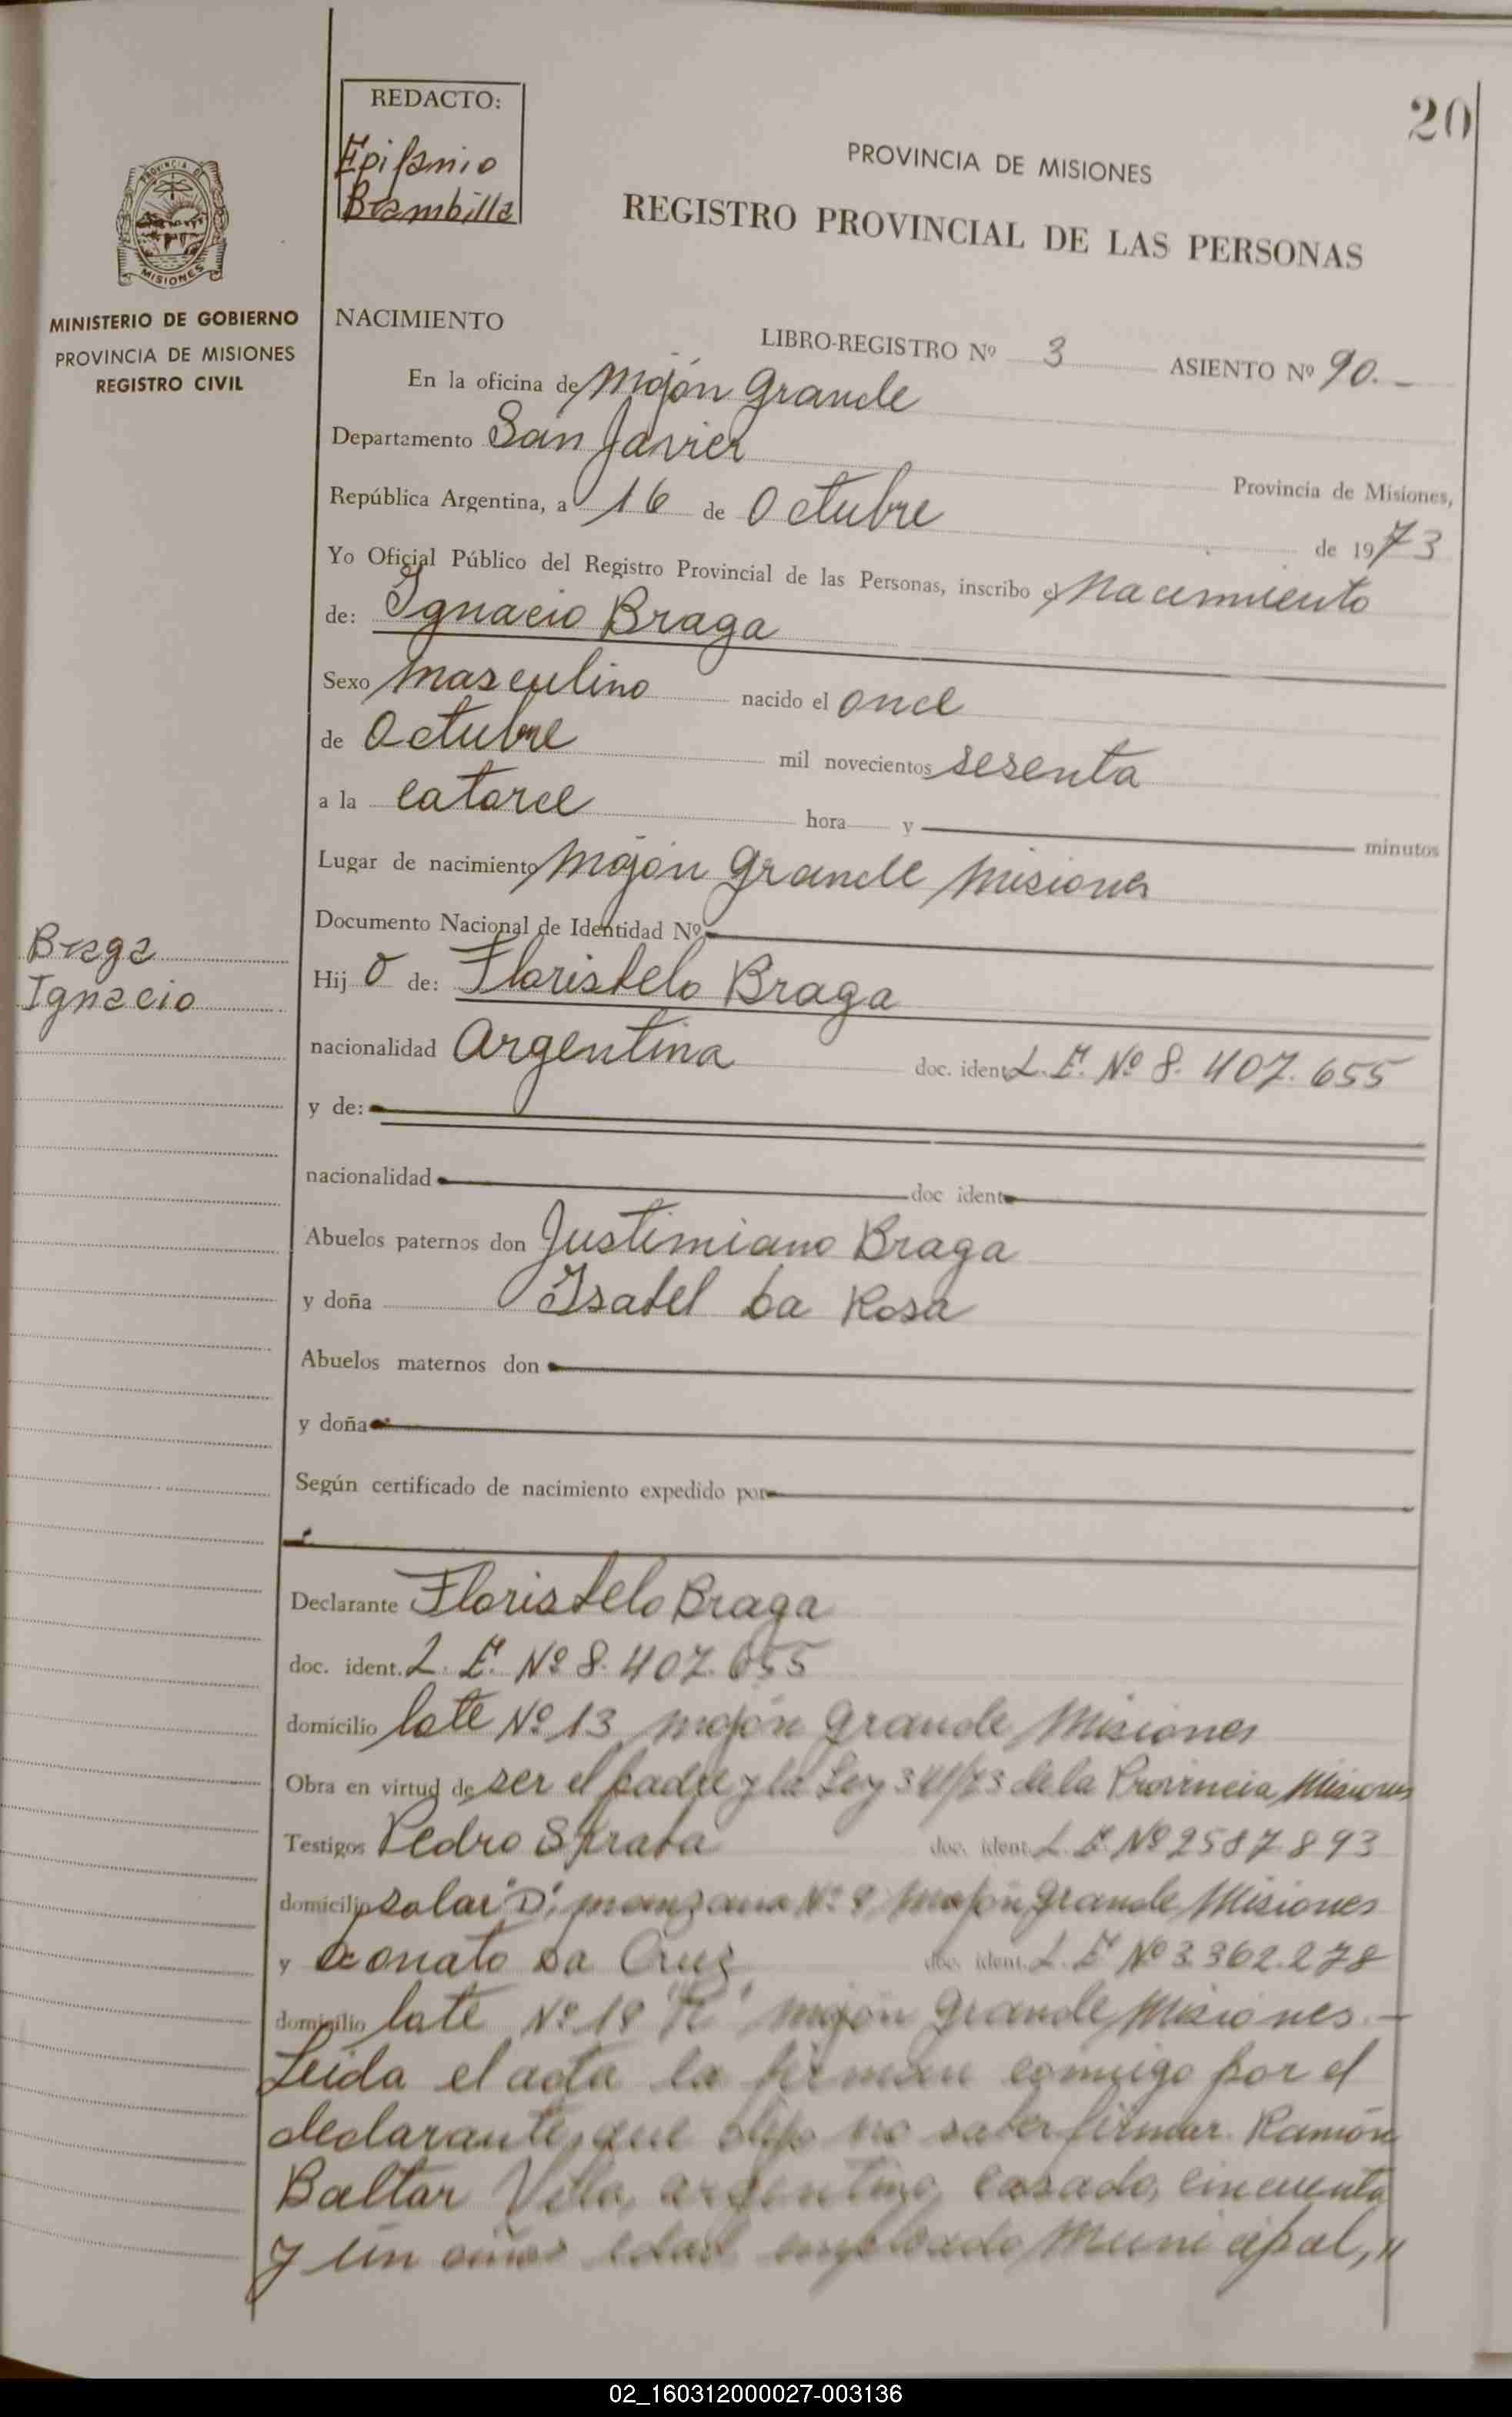 20
REDACTO:
Epifanio
Brambilla
PROVINCIA DE MISIONES
REGISTRO PROVINCIAL DE LAS PERSONAS
PROVINCIA DE
MISIONES
MINISTERIO DE GOBIERNO
PROVINCIA DE MISIONES
REGISTRO CIVIL
NACIMIENTO
LIBRO-REGISTRO Nº 3 ASIENTO Nº 90.-
En la oficina de Mojón Grande
Departamento San Javier Provincia de Misiones,
República Argentina, a 16 de Octubre de 1973
Yo Oficial Público del Registro Provincial de las Personas, inscribo el Nacimiento
de: Ignacio Braga
Sexo masculino nacido el once
de Octubre mil novecientos sesenta
a la catorce hora y minutos
Lugar de nacimiento Mojón Grande Misiones
Documento Nacional de Identidad Nº
Braga
Ignacio
Hij o de: Floristelo Braga
nacionalidad Argentina doc. ident. L. E. Nº 8.407.655
y de:
nacionalidad doc ident
Abuelos paternos don Justimiano Braga
y doña Isabel Da Rosa
Abuelos maternos don
y doña
Según certificado de nacimiento expedido por
Declarante Floristelo Braga
doc. ident. L. E. Nº 8.407.655
domicilio lote Nº 13 Mojón Grande Misiones
Obra en virtud de ser el padre y la Ley de la Provincia Misiones
Testigos Pedro doc. ident. L. E. Nº 2587893
domicilio solar "D" manzana Nº Mojón Grande Misiones
y Donato Da Cruz doc. ident. L. E. Nº 3.362.278
domicilio lote Nº Mojón Grande Misiones.-
Leida el acta la firman conmigo por el
declarante, que dijo no saber firmar. Ramón
Baltar Vila, argentino, casado, cincuenta
y un años edad empleado Municipal, "
02_160312000027-003136